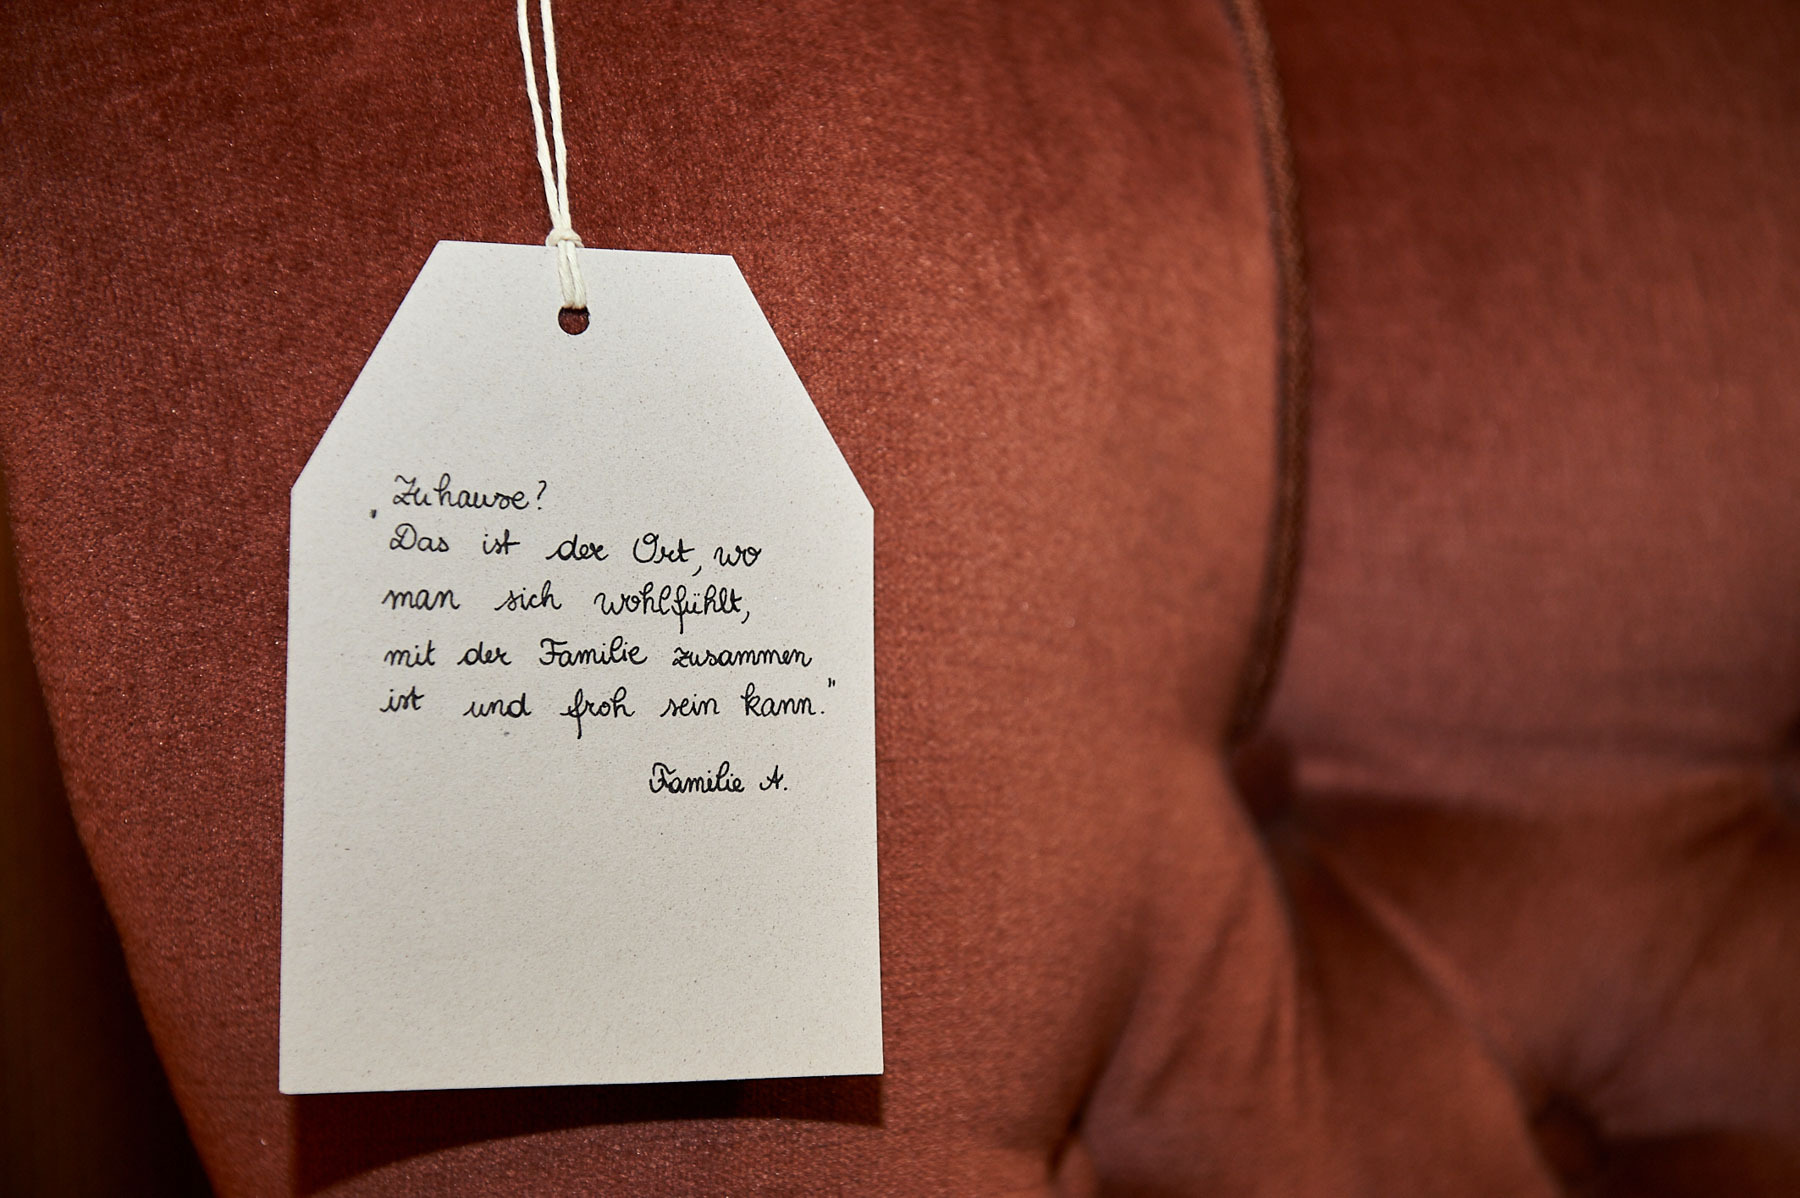 „Zuhause?
Das ist der Ort, wo
man sich wohlfühlt,
mit der Familie zusammen
ist und froh sein kann."
Familie A.